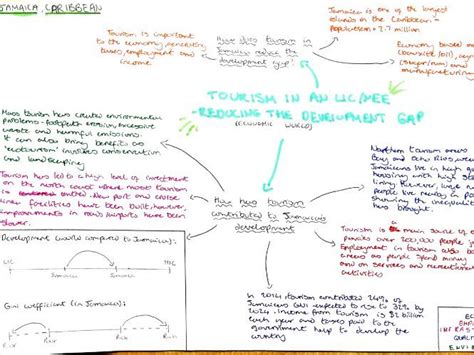 JAMAICA, CARIBBEAN
Tourism is important
to the economy, generating
taxes, employment and
income
How does tourism in
Jamaica reduce the
development gap?
Jamaica is one of the largest
islands in the Caribbean -
Population = 2.7 million
Economy based
(sugar/rum) and
manufacturing
TOURISM IN AN LIC/NEE
- REDUCING THE DEVELOPMENT GAP
(ECONOMIC WORLD)
Mass tourism has created environmental
problems - footpath erosion, excessive
waste and harmful emissions.
It can also bring benefits as
'ecotourism' involves conservation
and landscaping
Tourism has led to a high level of investment
on the north coast where most tourism
is centred. New port and cruise
liner facilities have been built, however,
improvements in roads/airports have been
slower.
How has tourism
contributed to Jamaica's
development
Northern tourism areas
Bay and Ocho Rios
Jamaicans live in high
housing with high
living. However,
people live nearby in
showing the inequality
has brought.
Tourism is main source of
provides over 200,000 people
Employment in tourism also
areas as people spend money
on services and recreation
activities
In 2014 tourism contributed 24% of
Jamaica's GNI expected to rise to 32% by
2024. Income from tourism is $2 billion
each year and taxes paid to the
government help to develop the
country
Development (world compared to Jamaica):
LIC
HIC
Gini coefficient (in Jamaica):
Rich
Rich